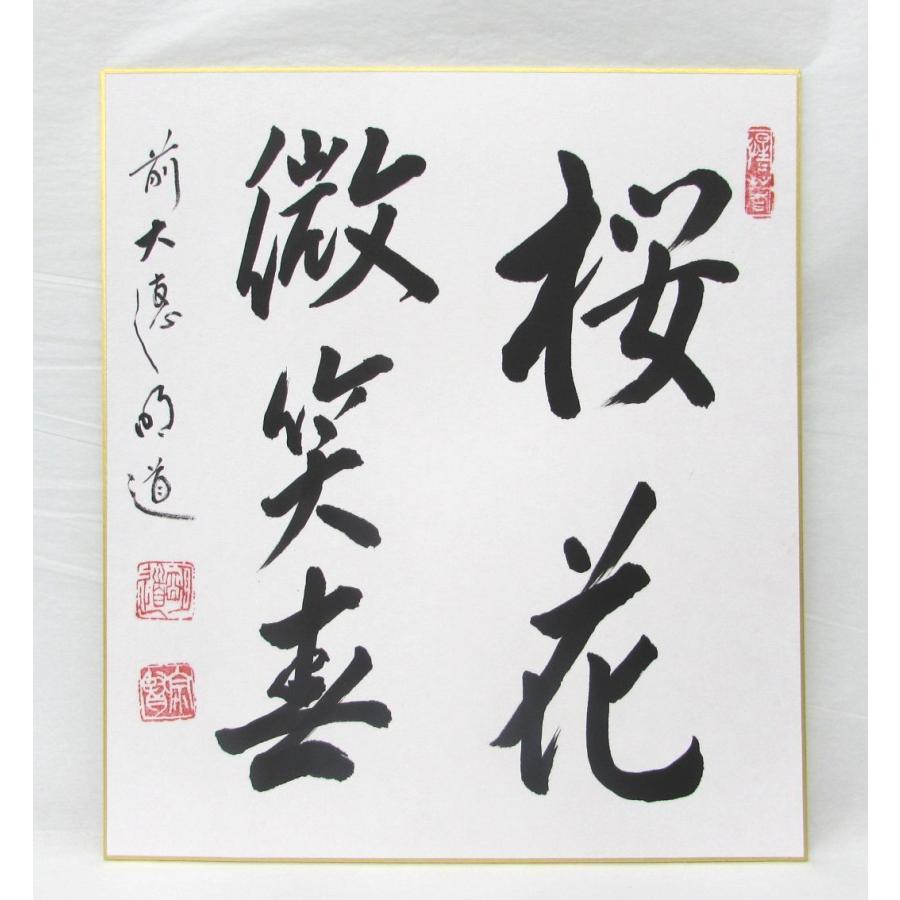 桜花
微笑春
前大徳明道